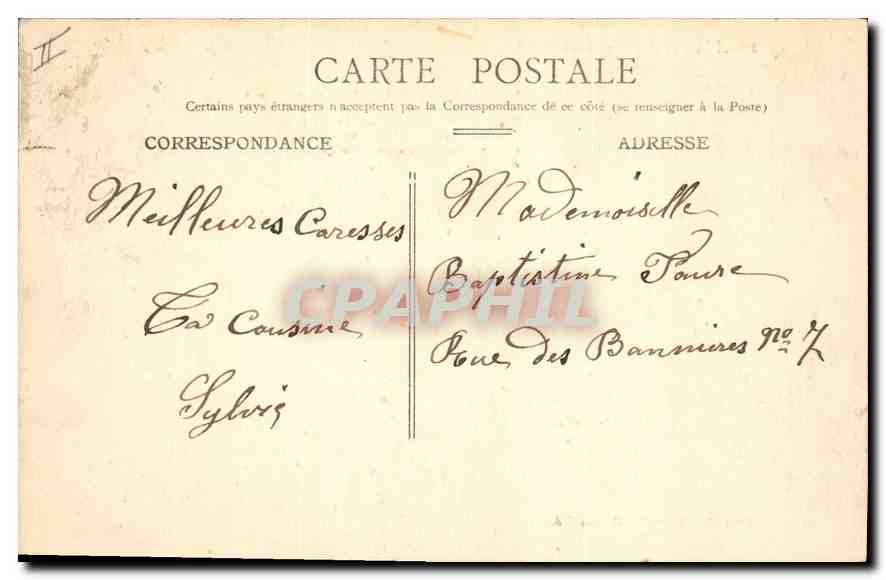 II
CARTE POSTALE
Certains pays étrangers n'acceptent pas la Correspondance de ce côté (se renseigner à la Poste)
CORRESPONDANCE
ADRESSE
Meilleures Caresses
Ta Cousine
Sylvie
Mademoiselle
Baptistine Faure
Rue des Bannières No 7
CPAPHIL